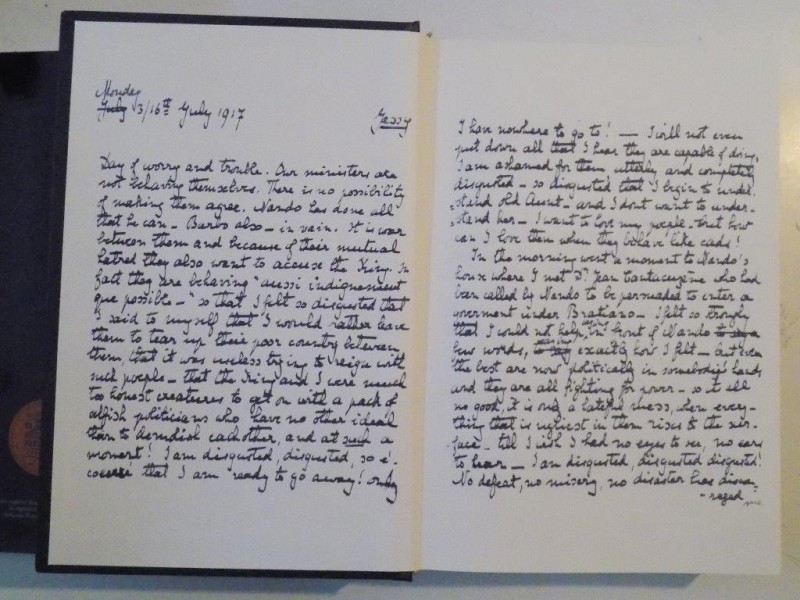 Monday
July 3/16th July 1917
Yassy
Day of worry and trouble. Our ministers are
not behaving themselves. There is no possibility
of making them agree. Nando has done all
that he can – Barbo also – in vain. It is war
between them and because of their mutual
hatred they also want to accuse the King. In
fact they are behaving "aussi indignement
que possible –" so that I felt so disgusted that
I said to myself that I would rather leave
them to tear up their poor country between
them, that it was useless trying to reign with
such people – that the King and I were much
too honest creatures to get on with a pack of
selfish politicians who have no other ideal
than to demolish eachother, and at such a
moment! I am disgusted, disgusted, so é-
coeuré that I am ready to go away! only
I have nowhere to go to! – I will not even
put down all that I hear they are capable of doing,
I am ashamed for them utterly and completely
disgusted – so disgusted that I begin to under-
stand old Aunt – and I don't want to under-
stand her – I want to love my people – but how
can I love them when they behave like cads!
In the morning went a moment to Nando's
house where I met Dr Jean Cantacuzène who had
been called by Nando to be persuaded to enter a
goverment under Bratiano – I felt so strongly
that I could not help, in front of Nando to say a
few words, to say exactly how I felt – but even
the best are now politically in somebodie's hands
and they are all fighting for power – so it all
no good, it is only a hateful mess, when every-
thing that is ugliest in them rises to the sur-
face – till I wish I had no eyes to see, no ears
to hear – I am disgusted, disgusted disgusted!
No defeat, no misery, no disaster has discou-
raged